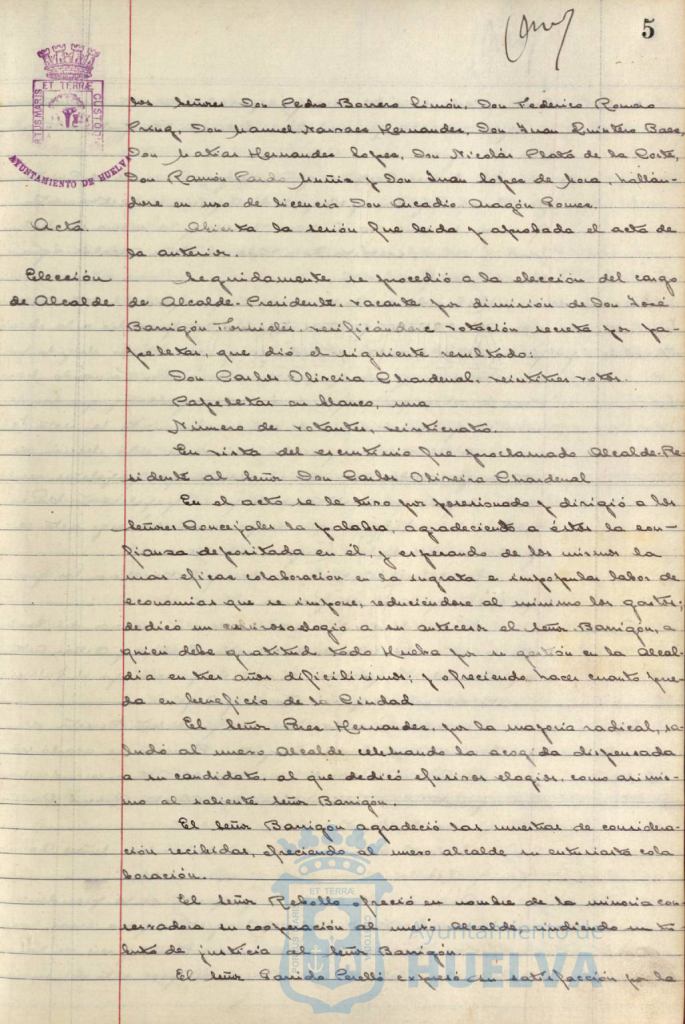 5
ET TERRÆ
PORTUS MARIS
CUSTODIA
AYUNTAMIENTO DE HUELVA
los Señores Don Pedro Borrero Limón, Don Federico Romero
Don Manuel Narvaez Hernandez, Don Juan Quintero Baez,
Don Matias Hernandez Lopez, Don Nicolás Plata de la Corte,
Don Ramón Pardo Muñiz y Don Juan Lopez de Mora, hallán-
dose en uso de licencia Don Arcadio Aragón Gomez.
Acta.
Abierta la sesión fue leida y aprobada el acta de
la anterior.
Elección
de Alcalde
Seguidamente se procedió a la elección del cargo
de Alcalde-Presidente, vacante por dimisión de Don José
Barrigón Fornieles, verificándose votación secreta por pa-
peletas, que dió el siguiente resultado:
Don Carlos Oliveira Chardenal, veintitres votos.
Papeletas en blanco, una
Número de votantes, veinticuatro.
En vista del escrutinio fue proclamado Alcalde-Pre-
sidente al Señor Don Carlos Oliveira Chardenal
En el acto se le tuvo por posesionado y dirigió a los
Señores Concejales la palabra, agradeciendo a éstos la con-
fianza depositada en él, y esperando de los mismos la
mas eficaz colaboración en la ingrata e impopular labor de
economias que se impone, reduciendose al minimo los gastos;
dedicó un elogio a su antecesor el Señor Barrigón, a
quien debe gratitud toda Huelva por su gestión en la Alcal-
dia en tres años dificilisimos; y ofreciendo hacer cuanto pue-
da en beneficio de la Ciudad
El Señor Perez Hernandez, por la mayoria radical, sa-
ludó al nuevo Alcalde celebrando la acogida dispensada
a su candidato, al que dedicó efusivos elogios, como asimis-
mo al saliente Señor Barrigón.
El Señor Barrigón agradeció las muestras de considera-
ción recibidas, ofreciendo al nuevo alcalde su entusiasta cola
boración.
El Señor Rebollo ofreció en nombre de la minoria con-
servadora su cooperación al nuevo Alcalde rindiendo un tri-
buto de justicia al Señor Barrigón.
El Señor Garrido Perelló expresó su satisfacción por la
Ayuntamiento de
HUELVA